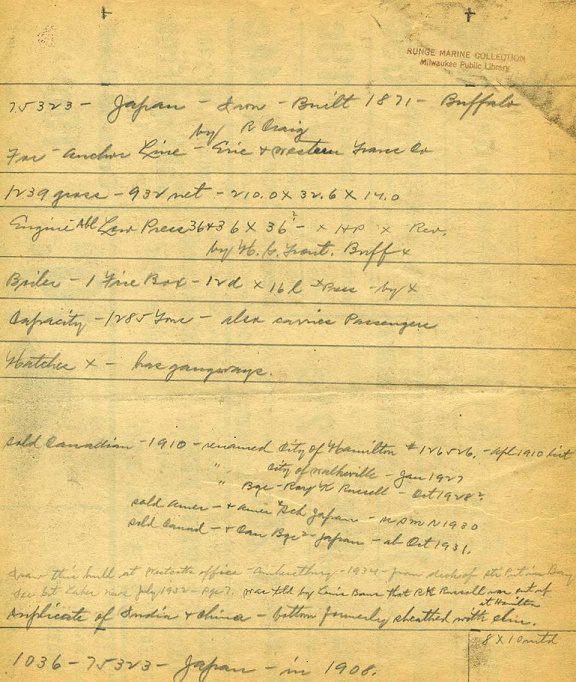 RUNGE MARINE COLLECTION
Milwaukee Public Library
75323 - Japan - Iron - Built 1871 - Buffalo
by R Craig
For Anchor Line - Erie & Western Trans Co
1239 gross - 932 net - 210.0 X 32.6 X 14.0
Engine All Low Press 36 & 36 X 36" - X HP X Rev.
by H. G. Trout. Buff X
Boiler - 1 Fire Box - 12 d X 16 l X Press - by X
Capacity - 1285 Tons - also carries Passengers
Hatches X - has gangways.
Sold Canadian - 1910 - renamed City of Hamilton # 126526. - Apl 1910 List
" City of Walkerville - Jan 1927
" Bge - Roy K Russell - Oct 1928?
sold Amer - & Amer Sch Japan - MSM N 1930
sold Canad - & Can Bge - Japan - ab Oct 1931.
Saw this hull at office - Amherstburg - 1934 - from deck of Str Put in Bay
See Gt Lakes News July 1932 - Pge 7. was told by that RK Russell was out of
at Hamilton
Duplicate of India & China - bottom formerly sheathed with elm.
8 X 10 neg
1036 - 75323 - Japan - in 1908.